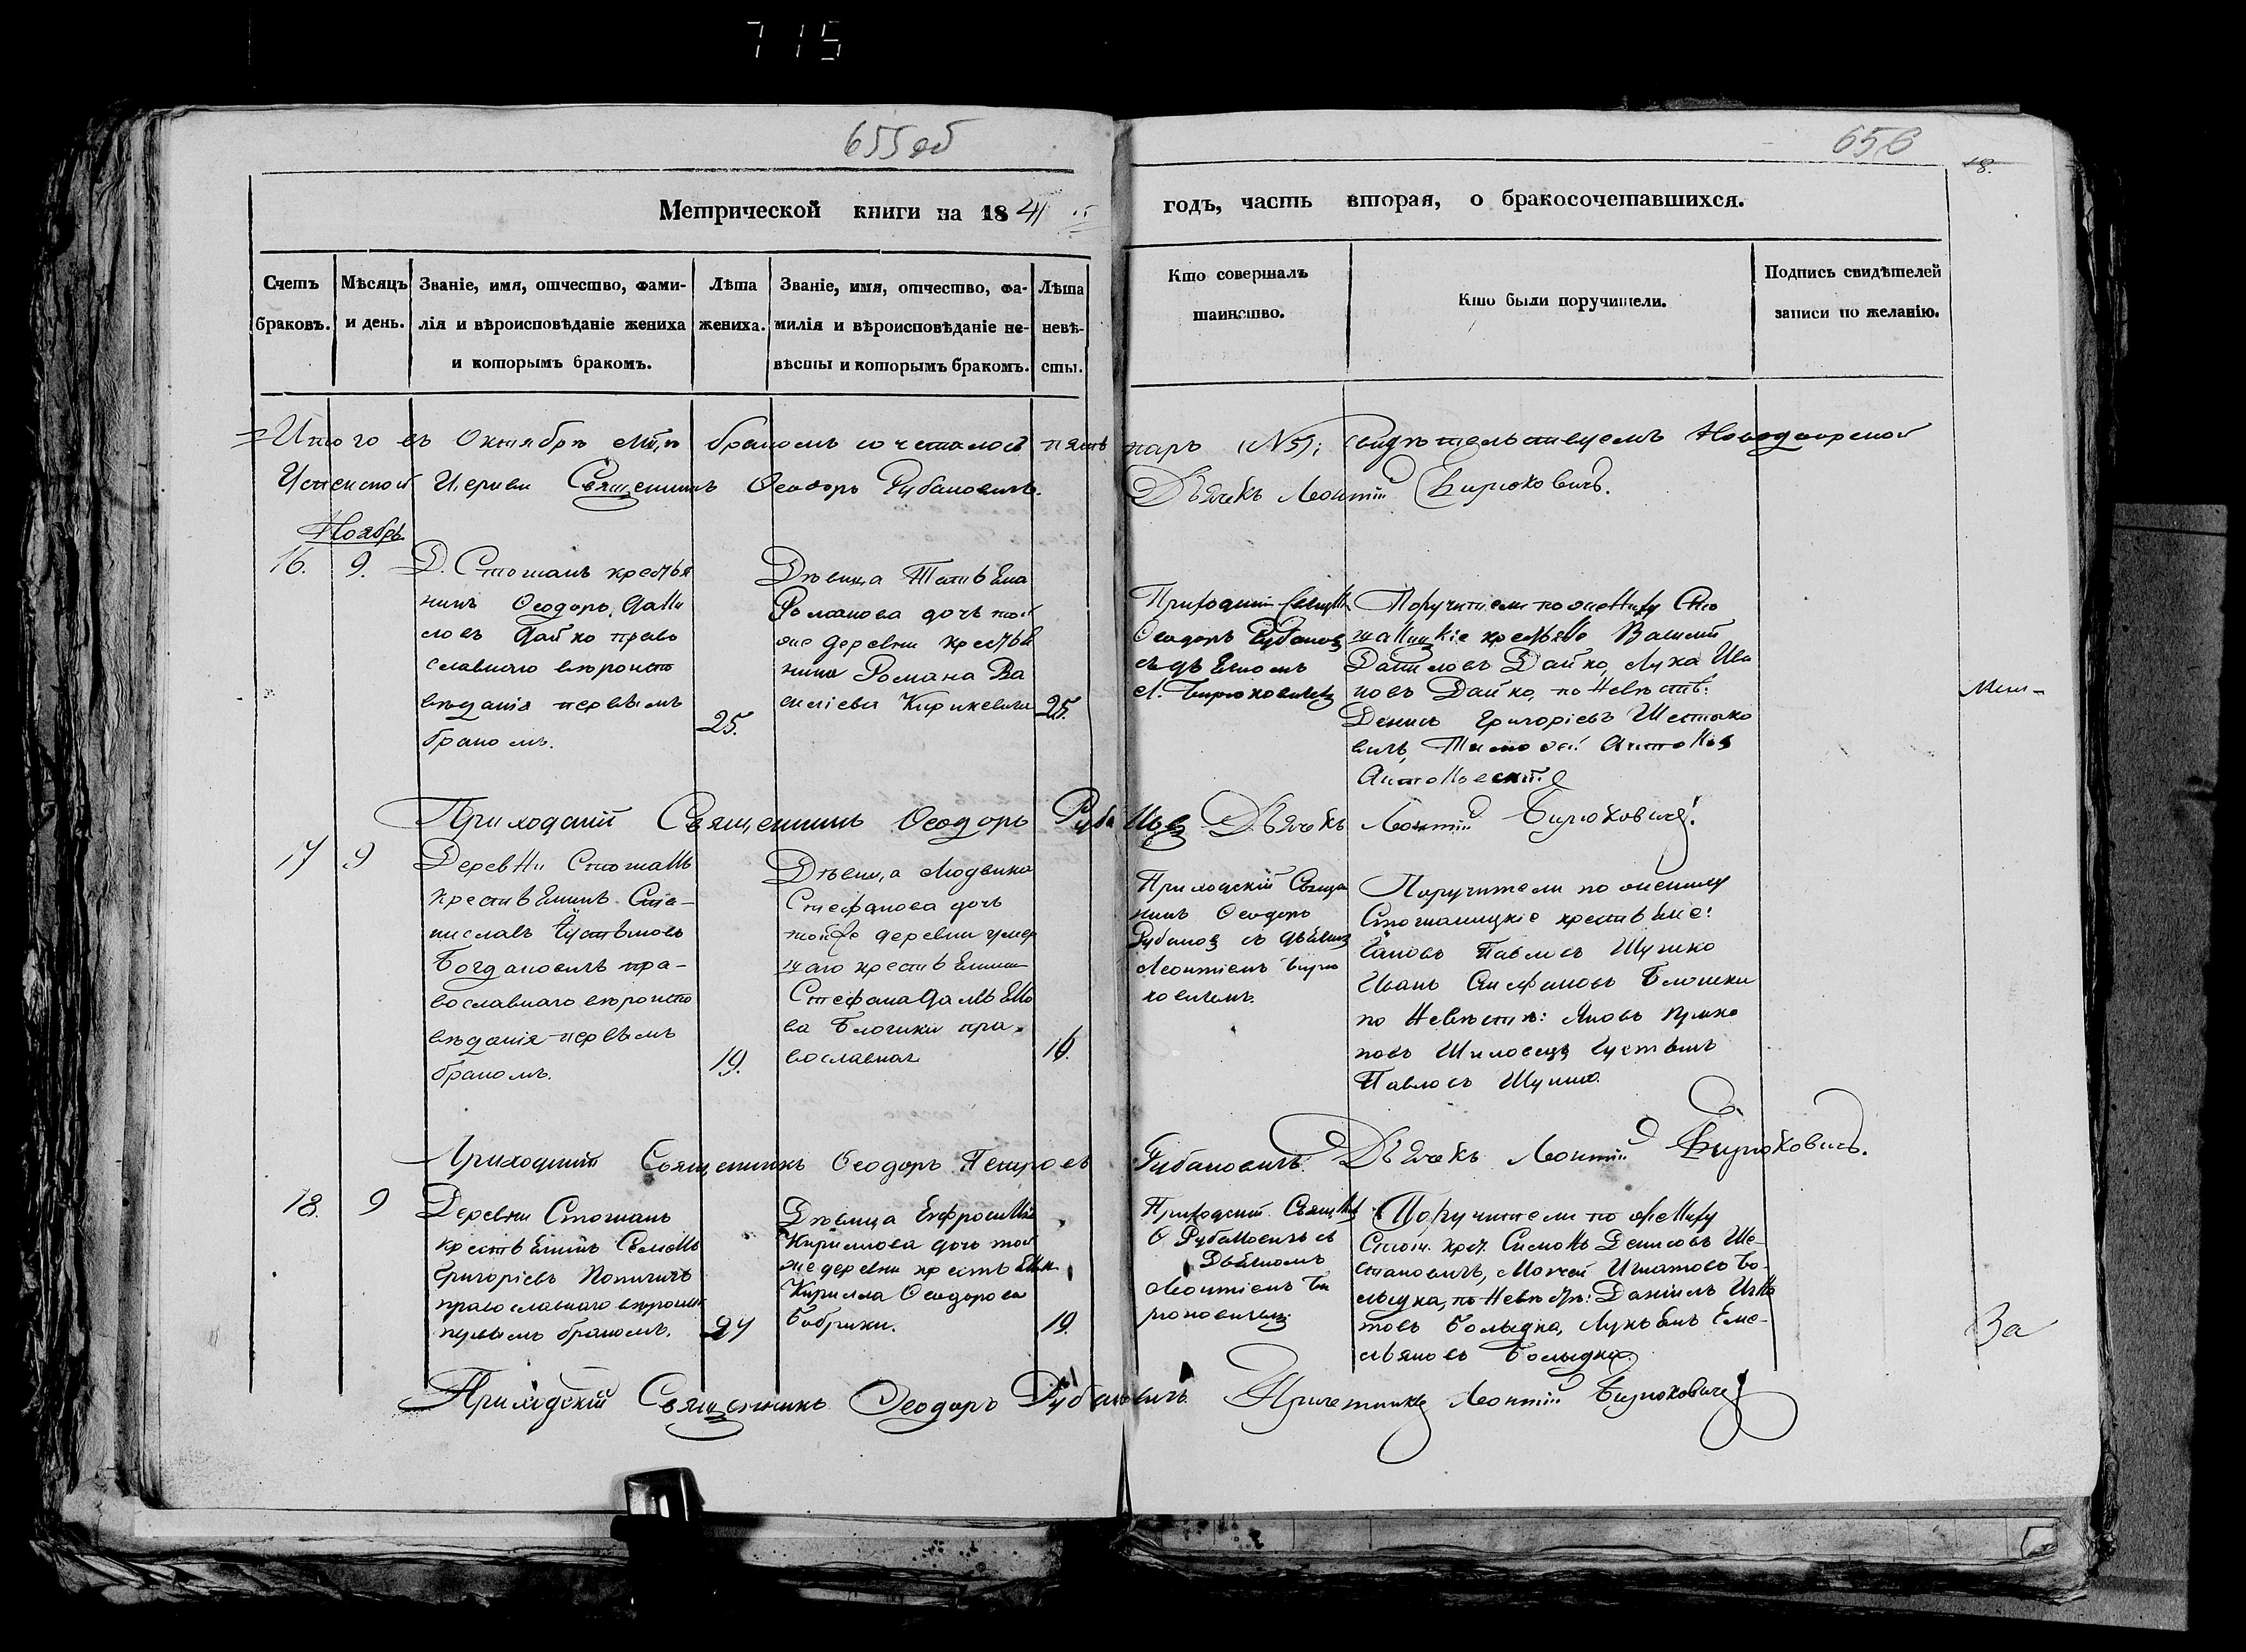 715
655 об
656
18.
Метрической книги на 1841 годъ, часть вторая, о бракосочетавшихся.
Счетъ браковъ.
Мѣсяцъ и день.
Званіе, имя, отчество, фами-
лія и вѣроисповѣданіе жениха
и которымъ бракомъ.
Лѣта
жениха.
Званіе, имя, отчество, фа-
милія и вѣроисповѣданіе не-
вѣсты и которымъ бракомъ.
Лѣта
невѣ-
сты.
Кто совершалъ
таинство.
Кто были поручители.
Подпись свидѣтелей
записи по желанію.
Итого въ Октябрѣ бракомъ сочеталось пять паръ (№5); свидѣтельствуемъ Новодворской
Успенской Церкви Священникъ Ѳеодоръ Рубановичъ. Дьячекъ Леонтій Бирюковичъ.
Ноябрь
16.
9.
Д. Стошанъ крестья
нинъ Ѳеодоръ Дани
ловъ Дайко право
славнаго вѣроиспо
вѣданія первымъ
бракомъ.
25.
Дѣвица Татьяна
Романова дочь той
же деревни крестья
нина Романа Ва
силіева Кирикевича
25.
Приходскій
Ѳеодоръ Рубанов
съ дьякомъ
Л. Бирюковичем
Поручители по жениху Сто
шанцкіе крестьяне Василій
Даниловъ Дайко, Лука Ива
новъ Дайко, по Невѣстѣ:
Денисъ Григоріевъ Шестако
вичъ, Тимоѳей Антонов
Антоновскій.
Приходскій Священникъ Ѳеодоръ Рубанов Дьячекъ Леонтій Бирюковичъ.
17
9
Деревни Стошанъ
крестьянинъ Ста-
ниславъ Іустиновъ
Богдановичъ пра-
вославнаго вѣроиспо
вѣданія первымъ
бракомъ.
19.
Дѣвица Людвика
Стефанова дочь
той же деревни умер
шаго крестьянина
Стефана
ва Блошки пра-
вославная
16.
Приходскій Священ
никъ Ѳеодоръ
Рубанов съ дьяком
Леонтіемъ Бирю
ковичемъ.
Поручители по жениху
Стошанцкіе крестьяне:
Павловъ Шушко
Иванъ Стефановъ Блошки
по Невѣстѣ: Яковъ
новъ Іустинъ
Павловъ Шушко.
Приходскій Священникъ Ѳеодоръ Петровъ Рубановичъ. Дьячекъ Леонтій Бирюковичъ.
18.
9
Деревни Стошанъ
крестьянинъ Семенъ
Григоріевъ
православнаго
первымъ бракомъ.
24
Дѣвица Ефросинія
Кириллова дочь той
же деревни крестьян
Кирилла Ѳеодорова
Бобрики.
19.
Приходскій Священ
Ѳ Рубановичъ съ
Дьякомъ
Леонтіемъ Би
рюковичем.
Поручители по жениху
Стош. крест. Симонъ Денисовъ Ше-
стаковичъ, Мойсей Игнатовъ Бо-
лыдка, по Невѣстѣ: Даніилъ Игна
товъ Болыдка, Лукьянъ Еме-
льяновъ Болыдка.
За
Приходскій Священникъ Ѳеодоръ Рубановичъ. Причетникъ Леонтій Бирюковичъ